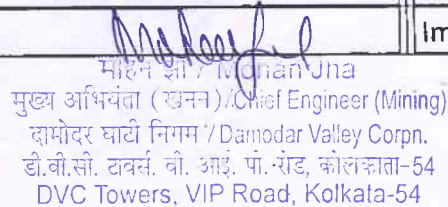 Im
मोहन झा / Mohan Jha
मुख्य अभियंता (खनन)/Chief Engineer (Mining)
दामोदर घाटी निगम / Damodar Valley Corpn.
डी.वी.सी. टावर्स. वी. आई. पी.-रोड, कोलकाता-54
DVC Towers, VIP Road, Kolkata-54